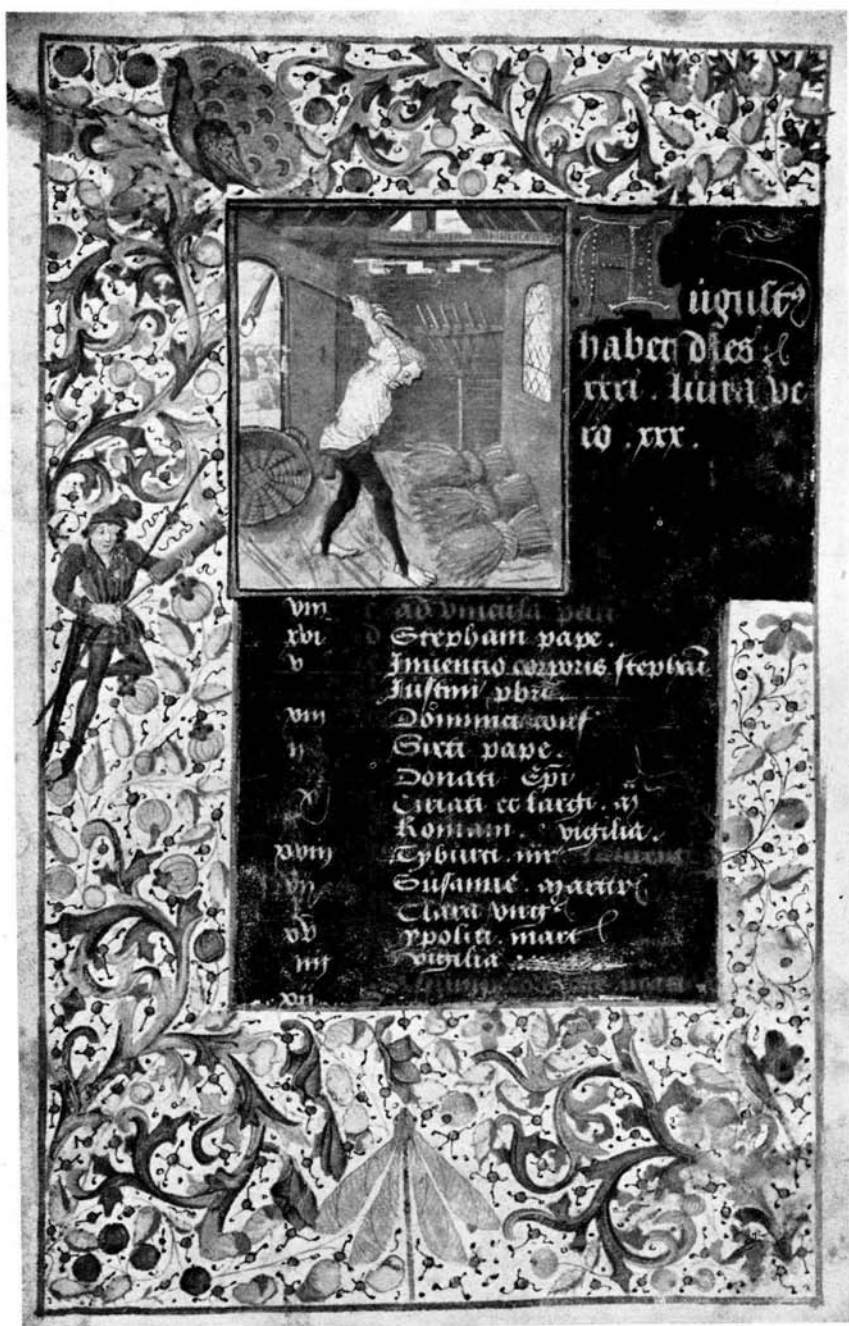 Augustꝰ
habet dies
xxxi. luna ve
ro .xxx.
viii c ad vincula petri
xvi d Stephani pape.
v Inuentio corporis stephani
Iustini pbri.
viii Dominici conf
ii Sixti pape.
Donati Epi
x Ciriaci et largi. m
Romani. vigilia.
xviii Tyburci. mr
vii Susanne. martir
Clara virg
xv ypoliti. mart
iiii vigilia
xii